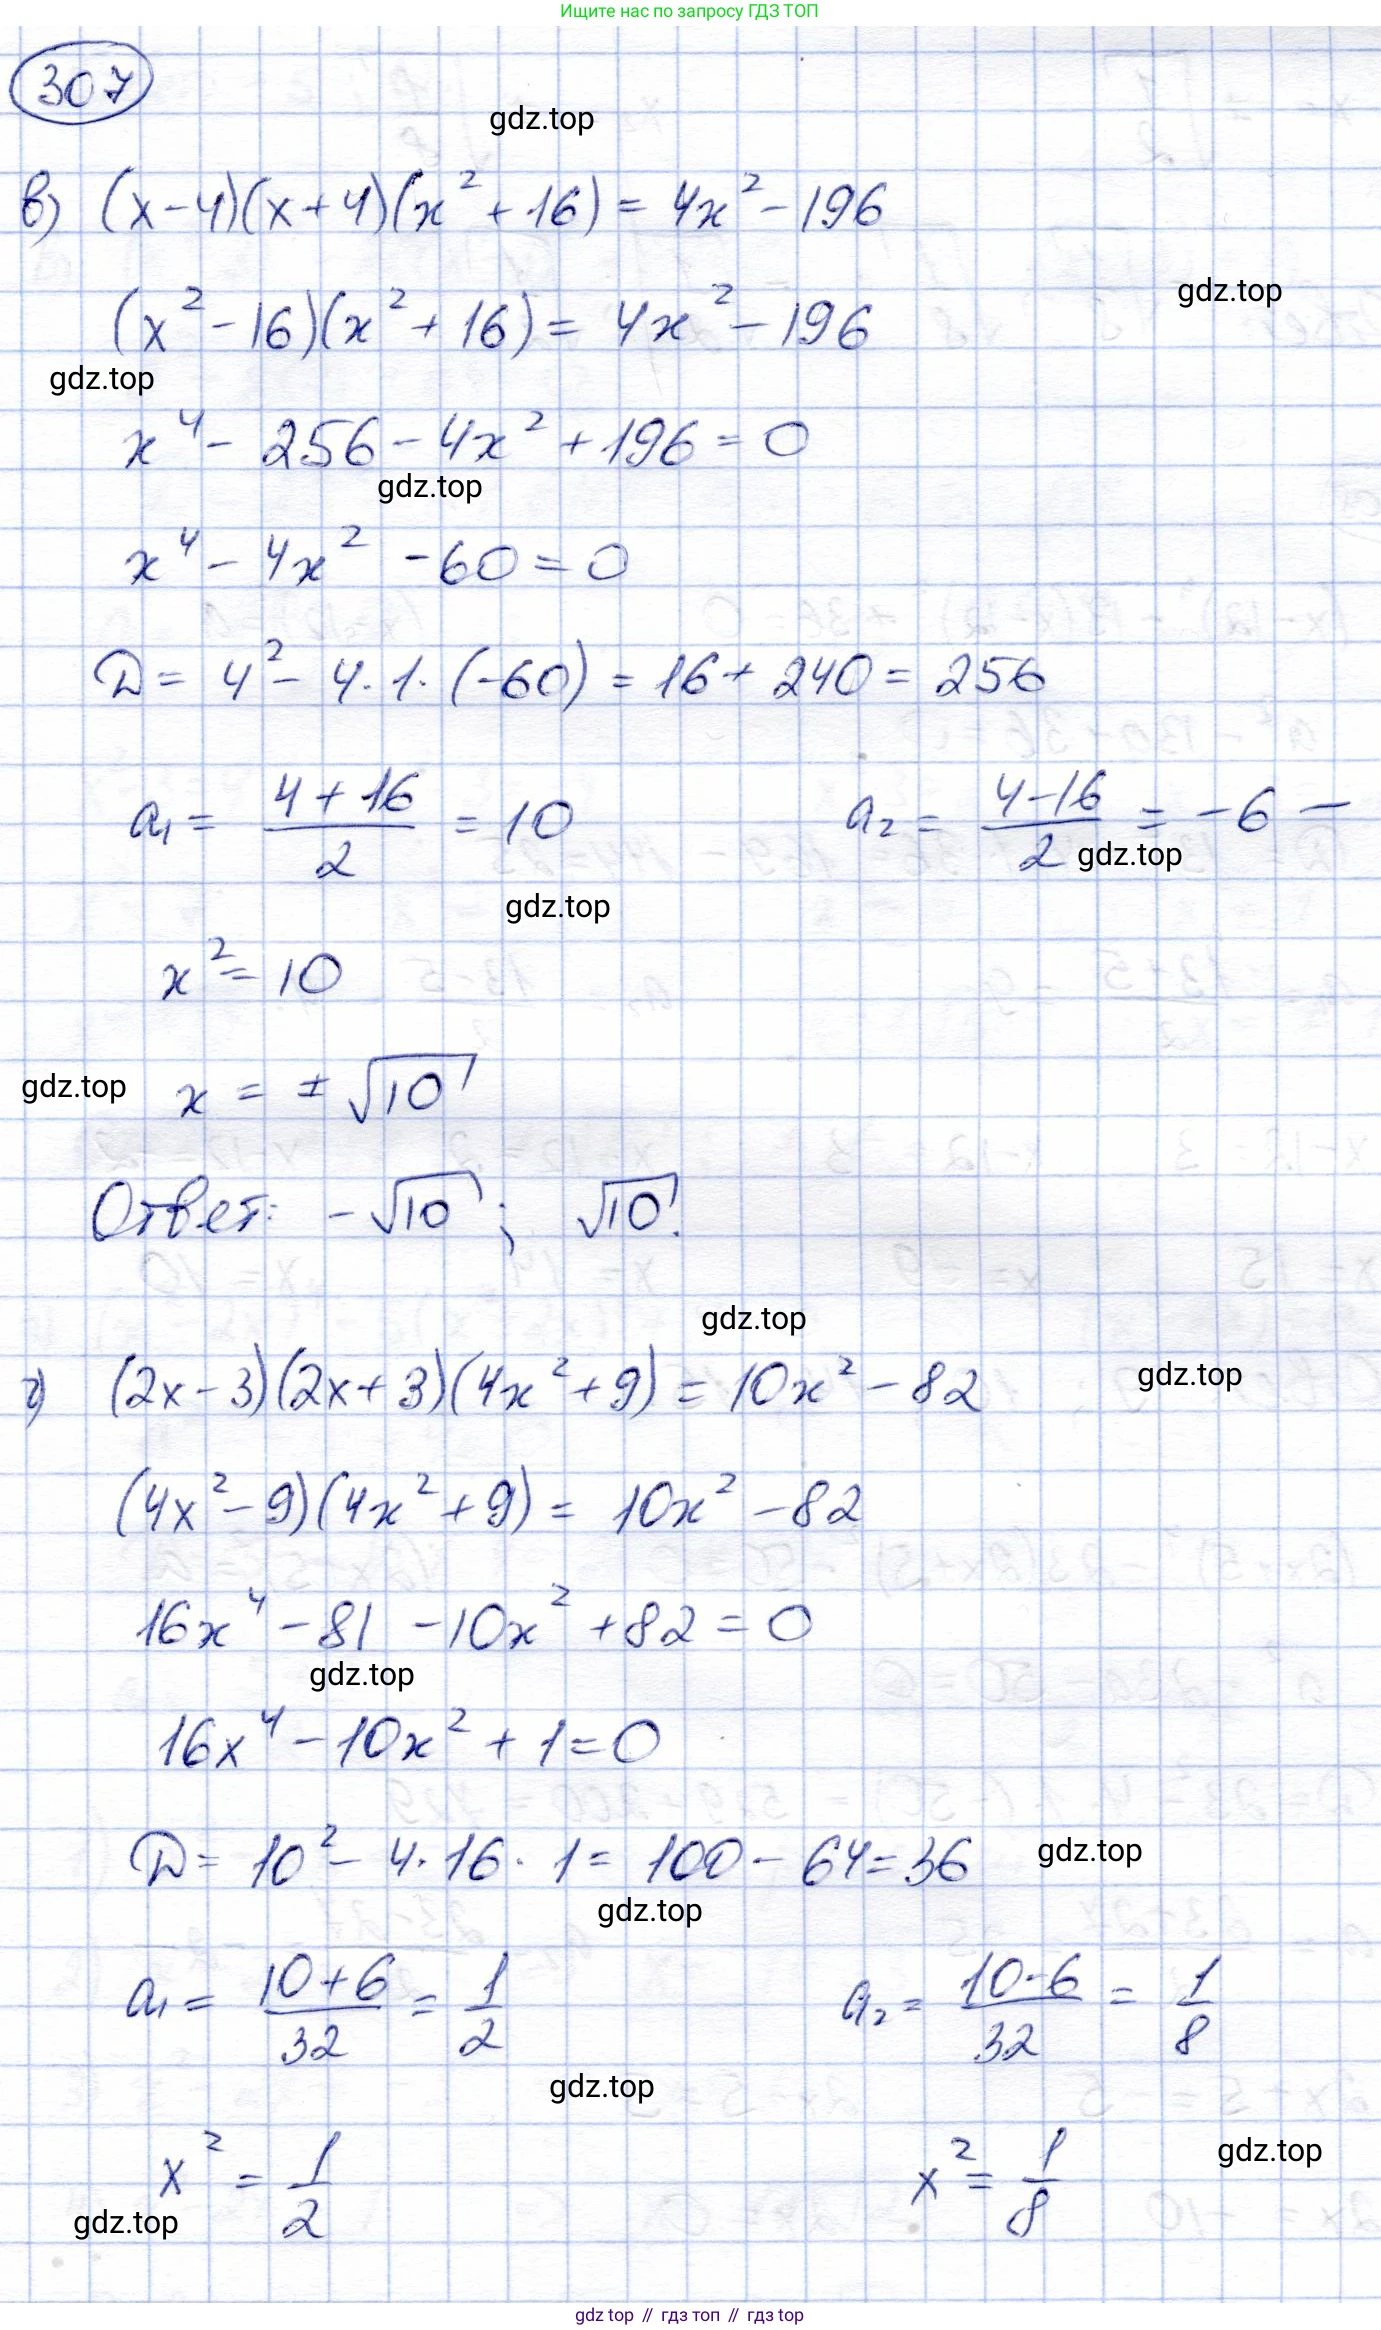 Ищите нас по запросу ГДЗ ТОП
307
gdz.top
в) (x-4)(x+4)(x²+16) = 4x²-196
gdz.top
(x²-16)(x²+16) = 4x²-196
gdz.top
x⁴ - 256 - 4x² + 196 = 0
gdz.top
x⁴ - 4x² - 60 = 0
D = 4² - 4·1·(-60) = 16 + 240 = 256
a₁ = (4+16)/2 = 10 a₂ = (4-16)/2 = -6 –
gdz.top
gdz.top
x² = 10
gdz.top
x = ±√10
Ответ: -√10; √10.
gdz.top
gdz.top
г) (2x-3)(2x+3)(4x²+9) = 10x²-82
(4x²-9)(4x²+9) = 10x²-82
16x⁴ - 81 - 10x² + 82 = 0
gdz.top
16x⁴ - 10x² + 1 = 0
D = 10² - 4·16·1 = 100 - 64 = 36
gdz.top
gdz.top
a₁ = (10+6)/32 = 1/2 a₂ = (10-6)/32 = 1/8
gdz.top
gdz.top
x² = 1/2 x² = 1/8
gdz.top
gdz top // гдз топ // gdz top